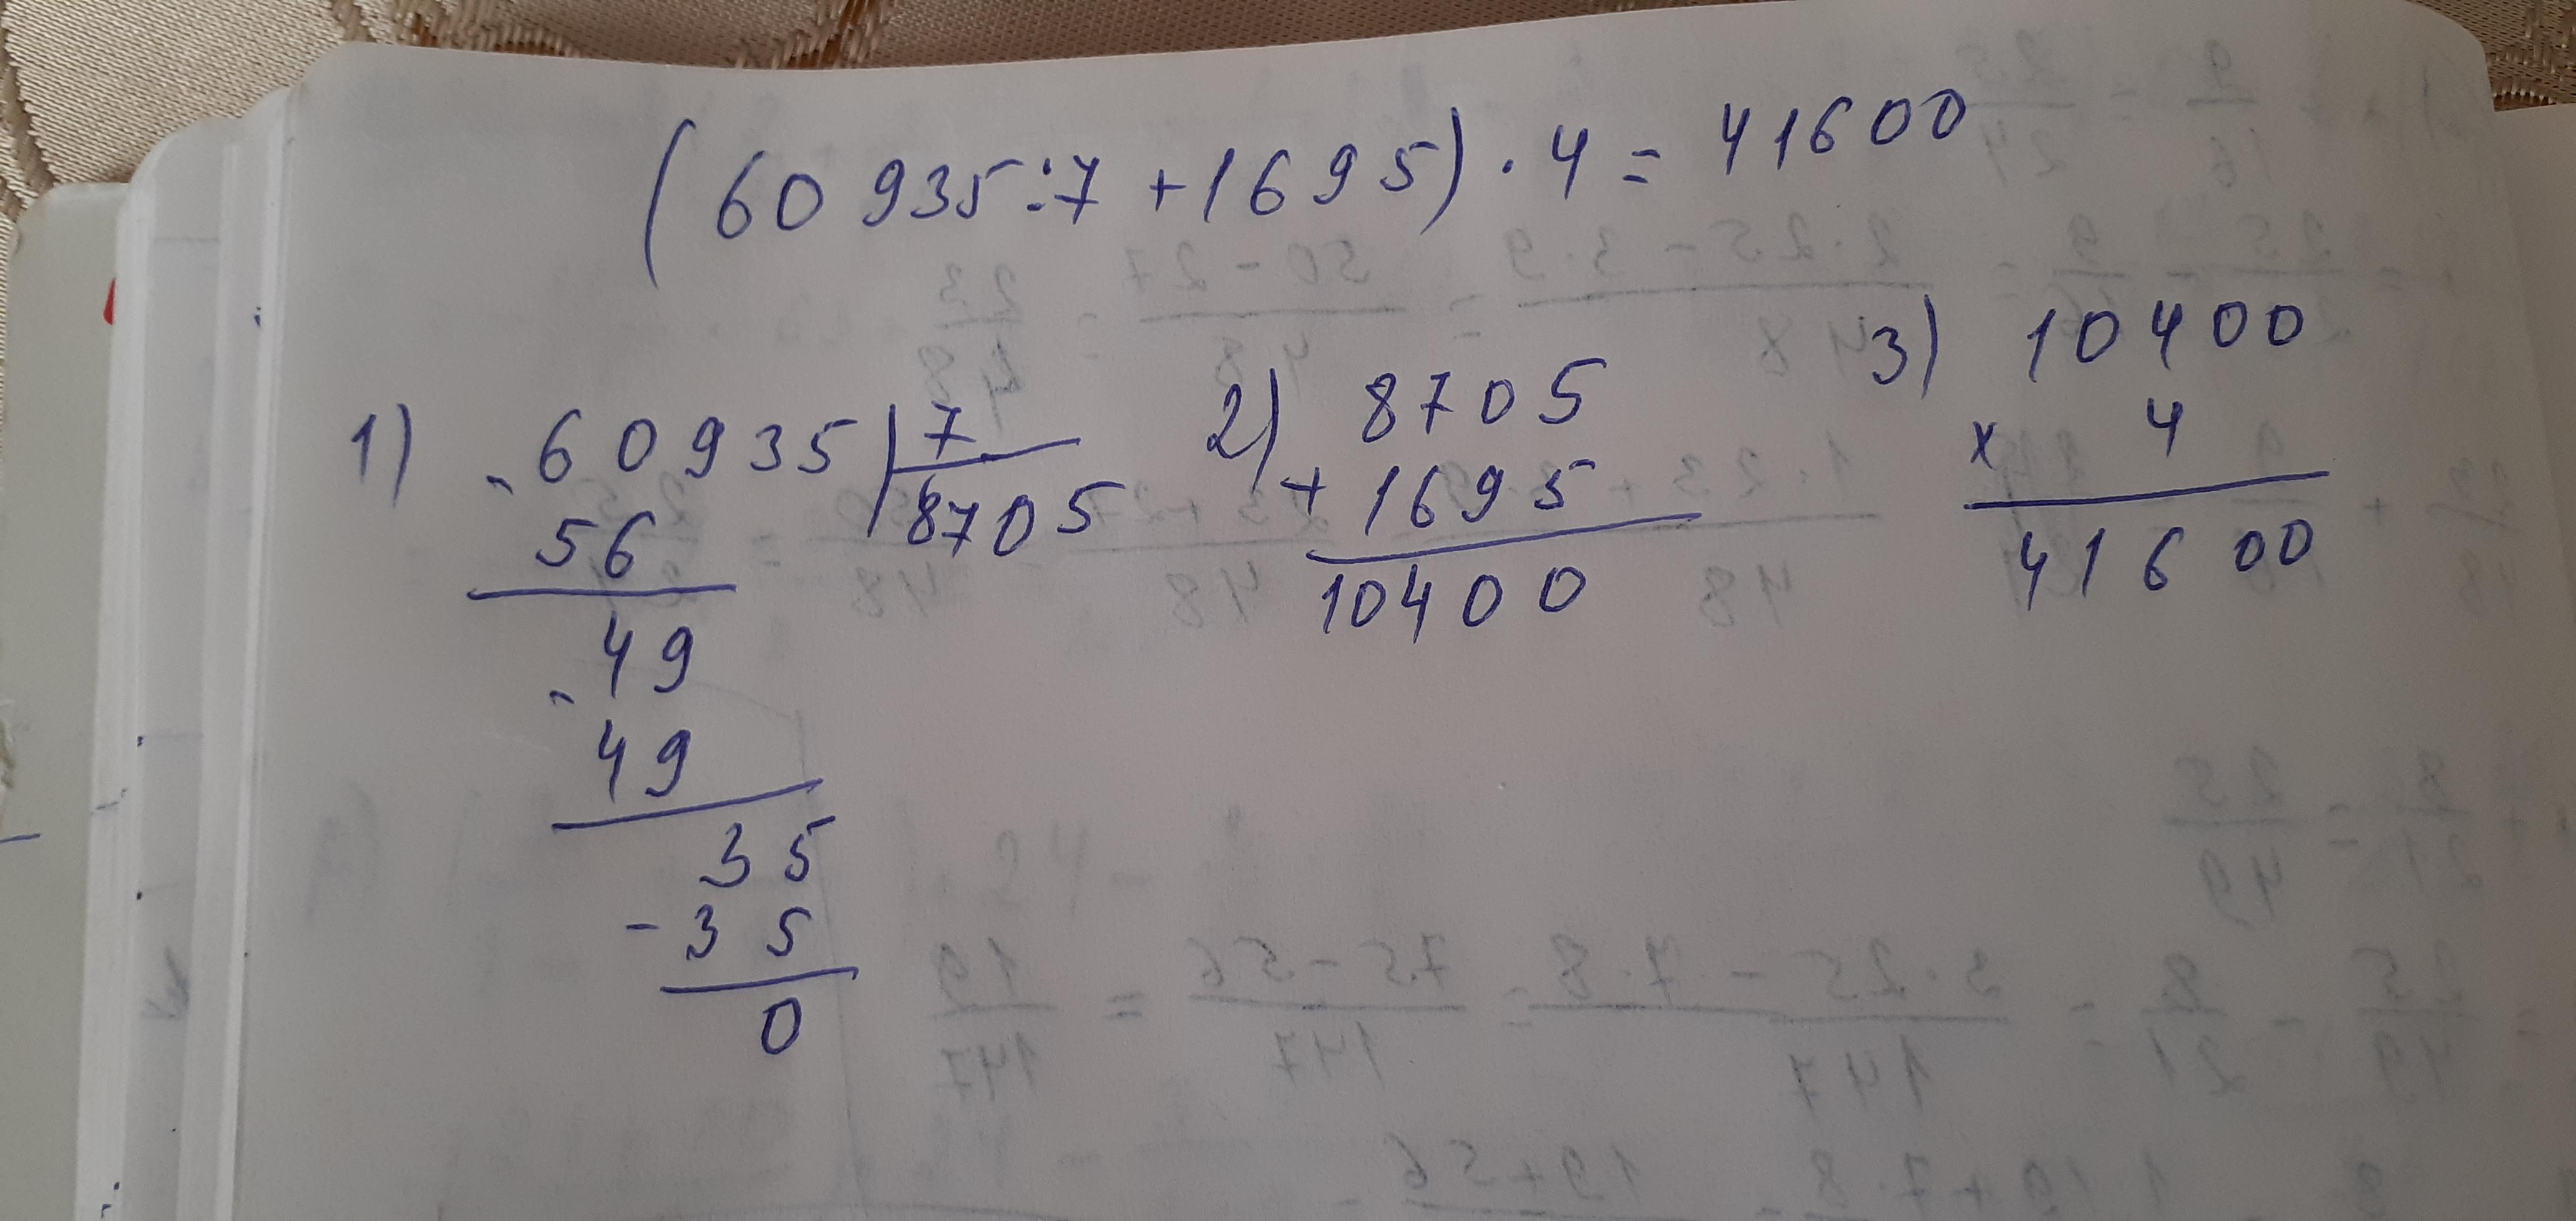 (60935:7+1695)·4=41600
1) -60935|7
56 8705
49
-
49
35
-35
0
2) 8705
+1695
10400
3) 10400
x 4
41600